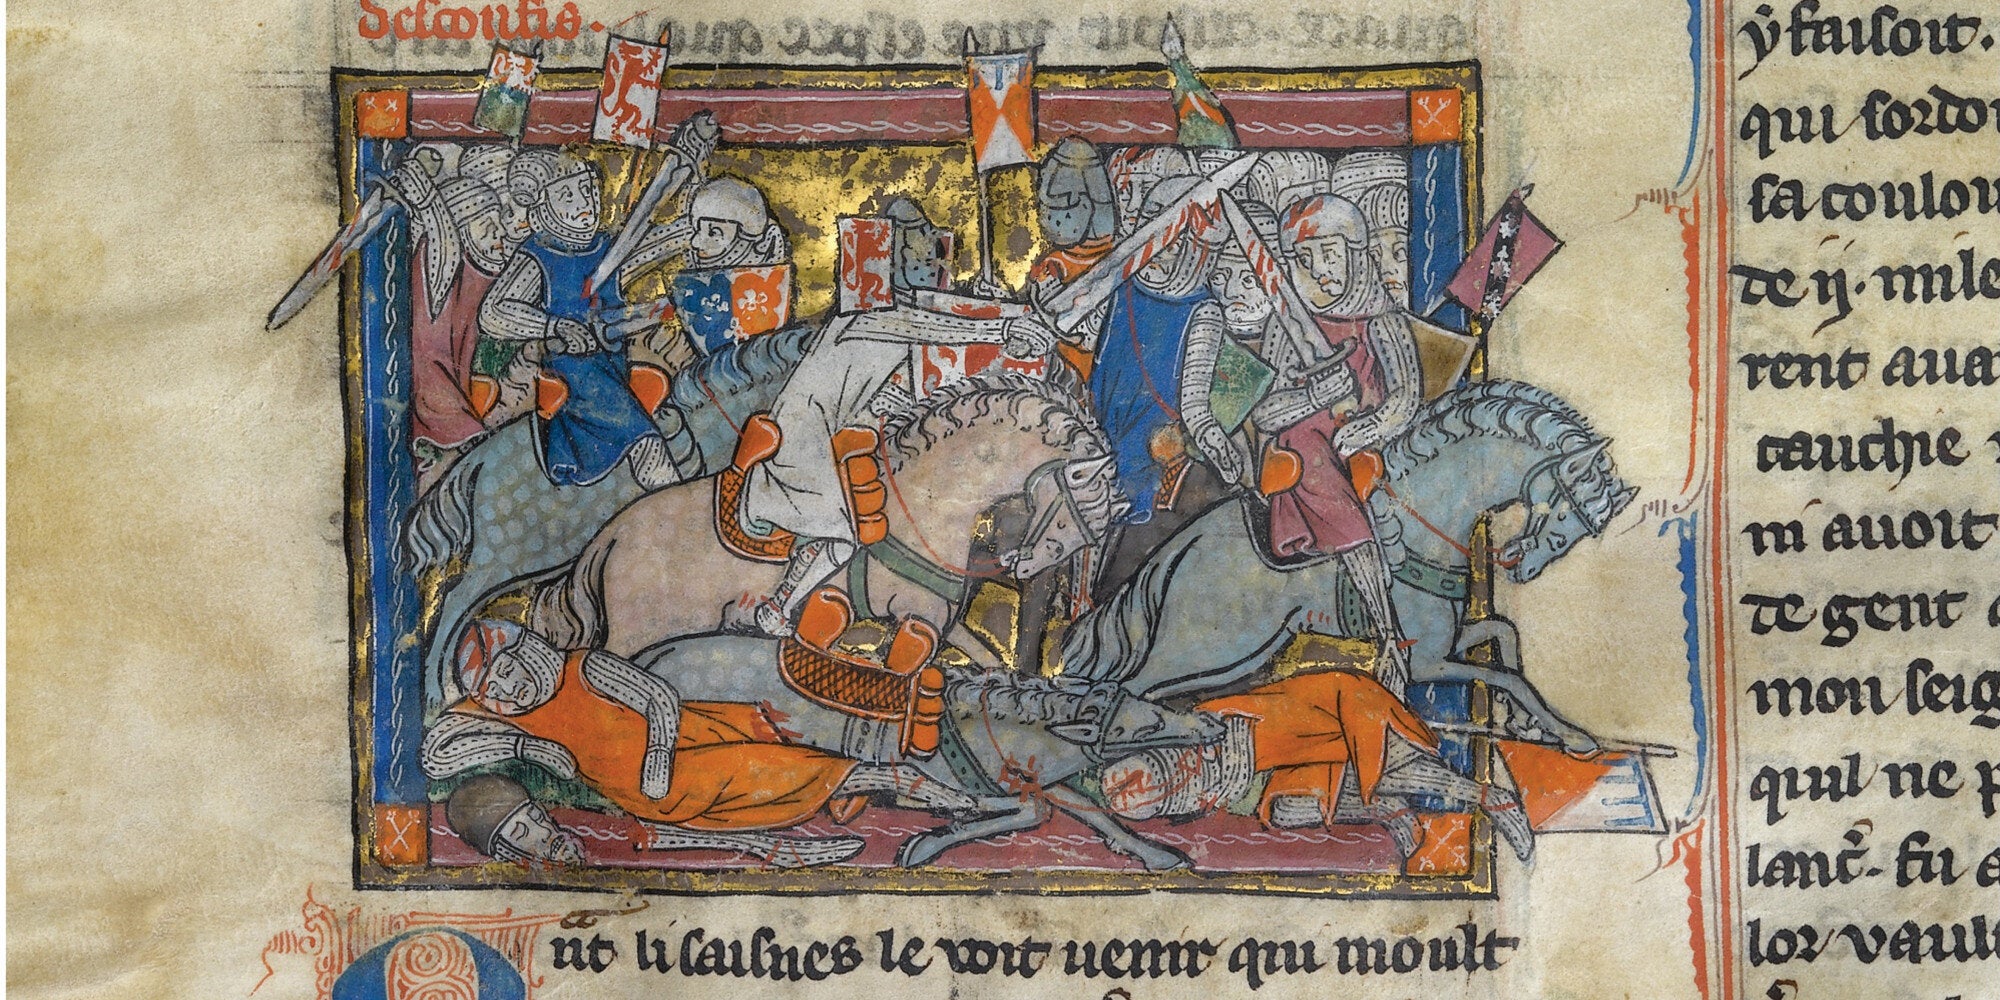 desconfis.
Qnt li saisnes le voit uenir qui moult
y faisoit.
qui sordoi
sa coulou
de ij. mile
rent aua
cauchie
ni auoit
de gent
mon seig
quil ne p
lanc. fu a
lor vault